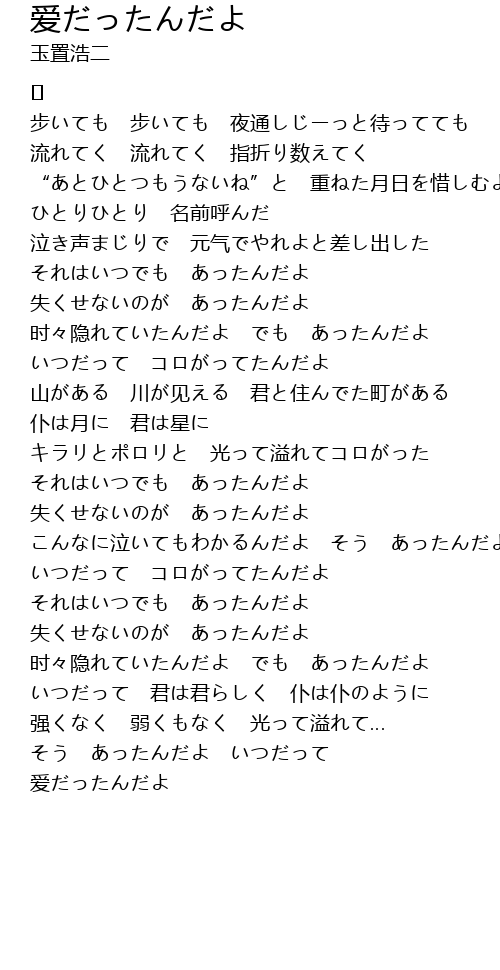 爱だったんだよ
玉置浩二
歩いても　歩いても　夜通しじーっと待ってても
流れてく　流れてく　指折り数えてく
“あとひとつもうないね”と　重ねた月日を惜しむよ
ひとりひとり　名前呼んだ
泣き声まじりで　元气でやれよと差し出した
それはいつでも　あったんだよ
失くせないのが　あったんだよ
时々隐れていたんだよ　でも　あったんだよ
いつだって　コロがってたんだよ
山がある　川が见える　君と住んでた町がある
仆は月に　君は星に
キラリとポロリと　光って溢れてコロがった
それはいつでも　あったんだよ
失くせないのが　あったんだよ
こんなに泣いてもわかるんだよ　そう　あったんだよ
いつだって　コロがってたんだよ
それはいつでも　あったんだよ
失くせないのが　あったんだよ
时々隐れていたんだよ　でも　あったんだよ
いつだって　君は君らしく　仆は仆のように
强くなく　弱くもなく　光って溢れて...
そう　あったんだよ　いつだって
爱だったんだよ